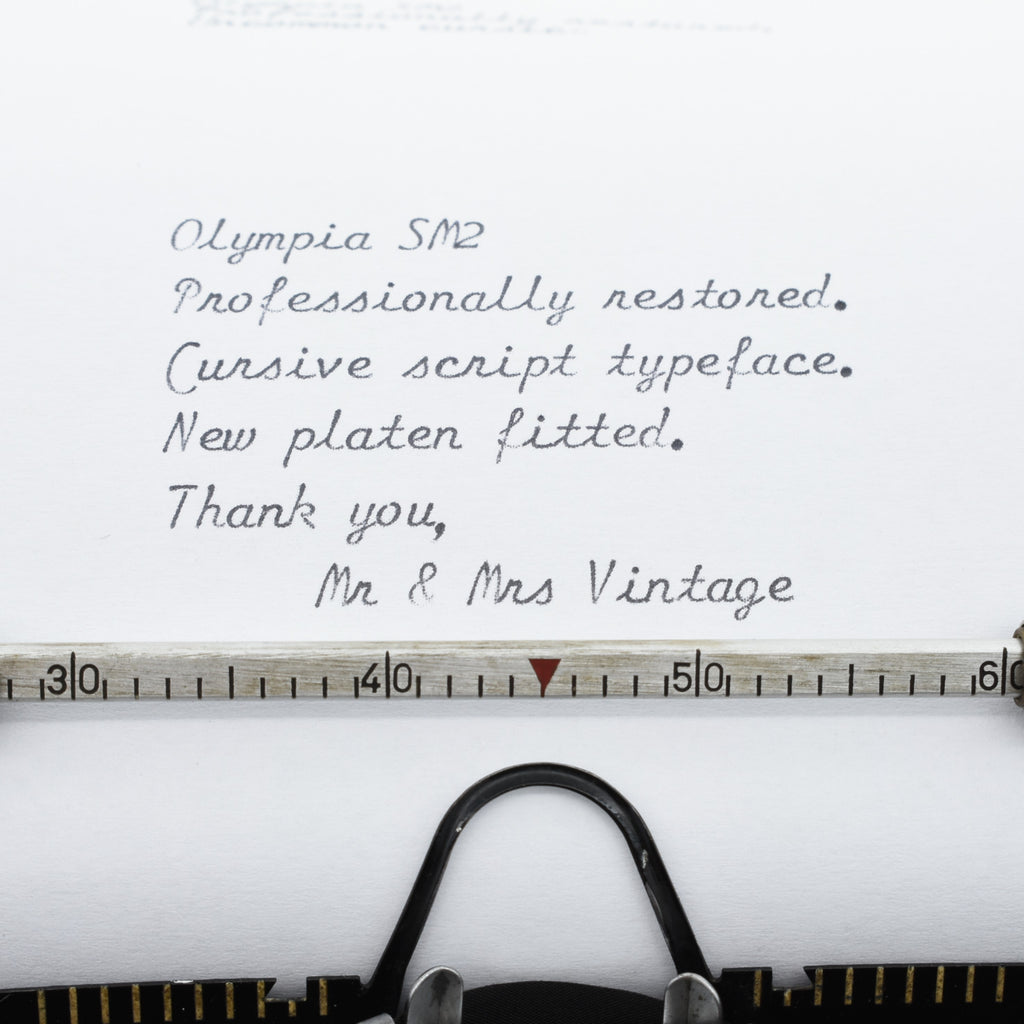 Olympia SM2
Professionally restored.
Cursive script typeface.
New platen fitted.
Thank you,
Mr & Mrs Vintage
30 40 50 60